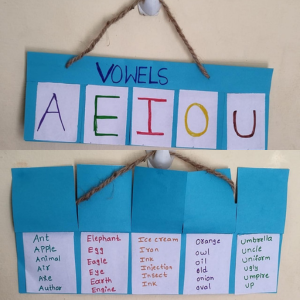 VOWELS
A E I O U
Ant
Apple
Animal
Air
Axe
Author
Elephant
Egg
Eagle
Eye
Earth
Engine
Ice cream
Iron
Ink
Injection
Insect
Ink
Orange
owl
oil
old
onion
oval
Umbrella
Uncle
Uniform
Ugly
umpire
up